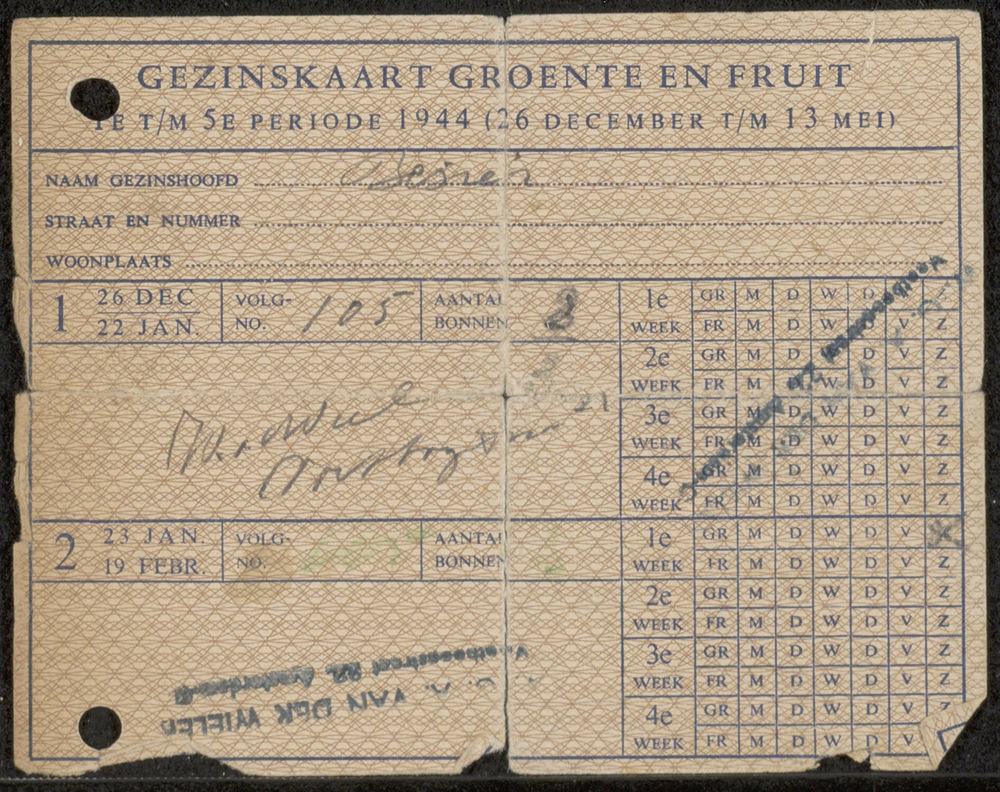 GEZINSKAART GROENTE EN FRUIT
1E T/M 5E PERIODE 1944 (26 DECEMBER T/M 13 MEI)
NAAM GEZINSHOOFD
STRAAT EN NUMMER
WOONPLAATS
1 26 DEC 22 JAN. VOLG-NO. 105 AANTAL BONNEN 2
1e WEEK GR M D W D V Z
FR M D W D V Z
2e WEEK GR M D W D V Z
FR M D W D V Z
3e WEEK GR M D W D V Z
FR M D W D V Z
4e WEEK GR M D W D V Z
FR M D W D V Z
2 23 JAN. 19 FEBR. VOLG-NO. AANTAL BONNEN
1e WEEK GR M D W D V
FR M D W D V Z
2e WEEK GR M D W D V Z
FR M D W D V Z
3e WEEK GR M D W D V Z
FR M D W D V Z
4e WEEK GR M D W D V Z
FR M D W D V
VAN DER WIELEN